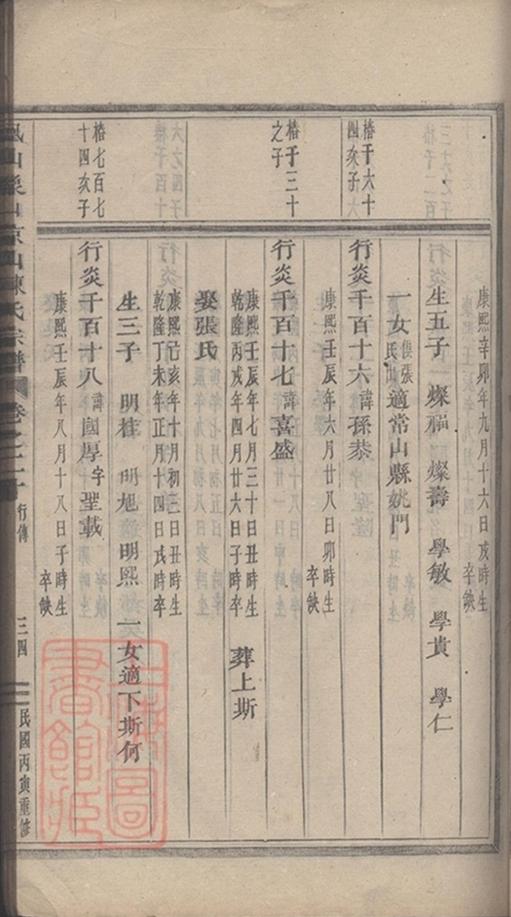 康熙辛卯年九月十六日戌時生
卒缺
生五子 燦福 燦壽 學敏 學貴 學仁
一女 適常山縣姚門
椿千六十
四次子
行炎千百十六諱孫恭
康熙壬辰年六月廿八日卯時生
卒缺
椿千三十
之子
行炎千百十七諱喜盛
康熙壬辰年七月三十日丑時生
乾隆丙戌年四月廿六日子時卒
葬上斯
娶張氏
康熙己亥年十月初三日丑時生
乾隆丁未年正月十四日戌時卒
生三子 明桂 明旭 明熙 一女適下斯何
椿七百七
十四次子
行炎千百十八諱國厚字聖載
康熙壬辰年八月十八日子時生
卒缺
山陳氏宗譜 卷之二十 行傳 三四 民國丙寅重修